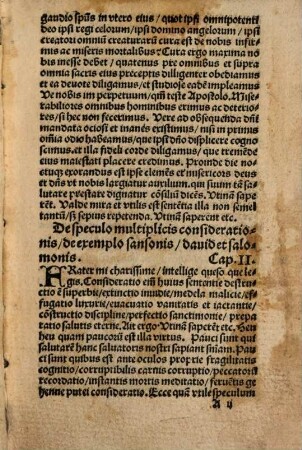 gaudio spūs in vtero eius / quot ipsi omnipotenti
deo ipsi regi celorum / ipsi domino angelorum / ipsi
creatori omniū creaturarū cura est de nobis infir-
mis ac miseris mortalibus? Cura ergo maxima no
bis inesse debet / quatenus pre omnibus et omnia
sacris eius preceptis diligenter obediamus et
ea deuote diligamus / et studiose eadē impleamus
Ut nobis im perpetuum / qm̄ teste Apostolo. Mise-
rabiliores omnibus hominibus erimus ac deterio-
res / si hec non fecerimus. Uere ad obsequenda dn̄i
mandata ociosi et inanes existimus / nisi in primis
omnia odio habeamus / que ipsi dn̄o displicere cognos-
cimus / et illa fideli corde diligamus / que tremēde
eius maiestati placere credimus. Proinde die no-
ctuq; exorandus est ipse clemēs et misericors deus
et dn̄s vt nobis largiatur aurilium. qui suum tā salu-
tare prestare dignatur cōsiliū dicēs. Utinā saperēt
Ualde mira et vtilis est sentētia illa non semel
tantū / sꝫ septius repetenda. Utinā saperent etc.
De speculo multiplicis consideratio-
nis / de exemplo sansonis / dauid et salo-
monis. Cap. II.
FRater mi charissime / intellige queso que le-
gis. Consideratio eim̄ huius sentētie destru-
ctio ē superbie / extinctio inuidie / medela malicie / ef-
fugatio lururie / euacuatio vanitatis et iactantie /
cōstructio discipline / perfectio sanctimonie / prepa
ratio salutis eterne. Ait ergo Utinā saperēt etc. Heu
heu quam paucorū est illa virtus. Pauci sunt qui
salutarē hanc saluatoris nostri sapiant sniam. Pau
ci sunt quibus est ante oculos proprie fragilitatis
cognitio / corruptibilis carnis corruptio / peccatorū
recordatio / instantis mortis meditatio / feruētis ge
henne putei consideratio. Ecce quā vtile speculum
A ij